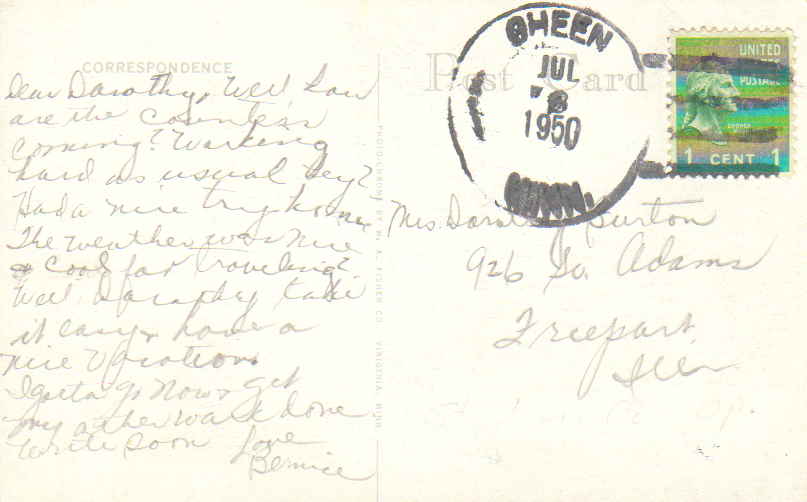 CORRESPONDENCE
Dear Dorothy, Well how
are the
coming? Working
hard as usual hey?
Had a nice trip home
The weather was nice
& cool for traveling
Well Dorothy take
it easy & have a
nice vacation.
I gotta go now & get
my other work done
Write soon Love
Bernice
PHOTOCHROME BY W. A. FISHER CO. VIRGINIA, MINN
Post Card
GHEEN
JUL
1950
MINN.
UNITED
POSTAGE
1 CENT 1
Mrs. Burton
926 So. Adams
Freeport
Ill